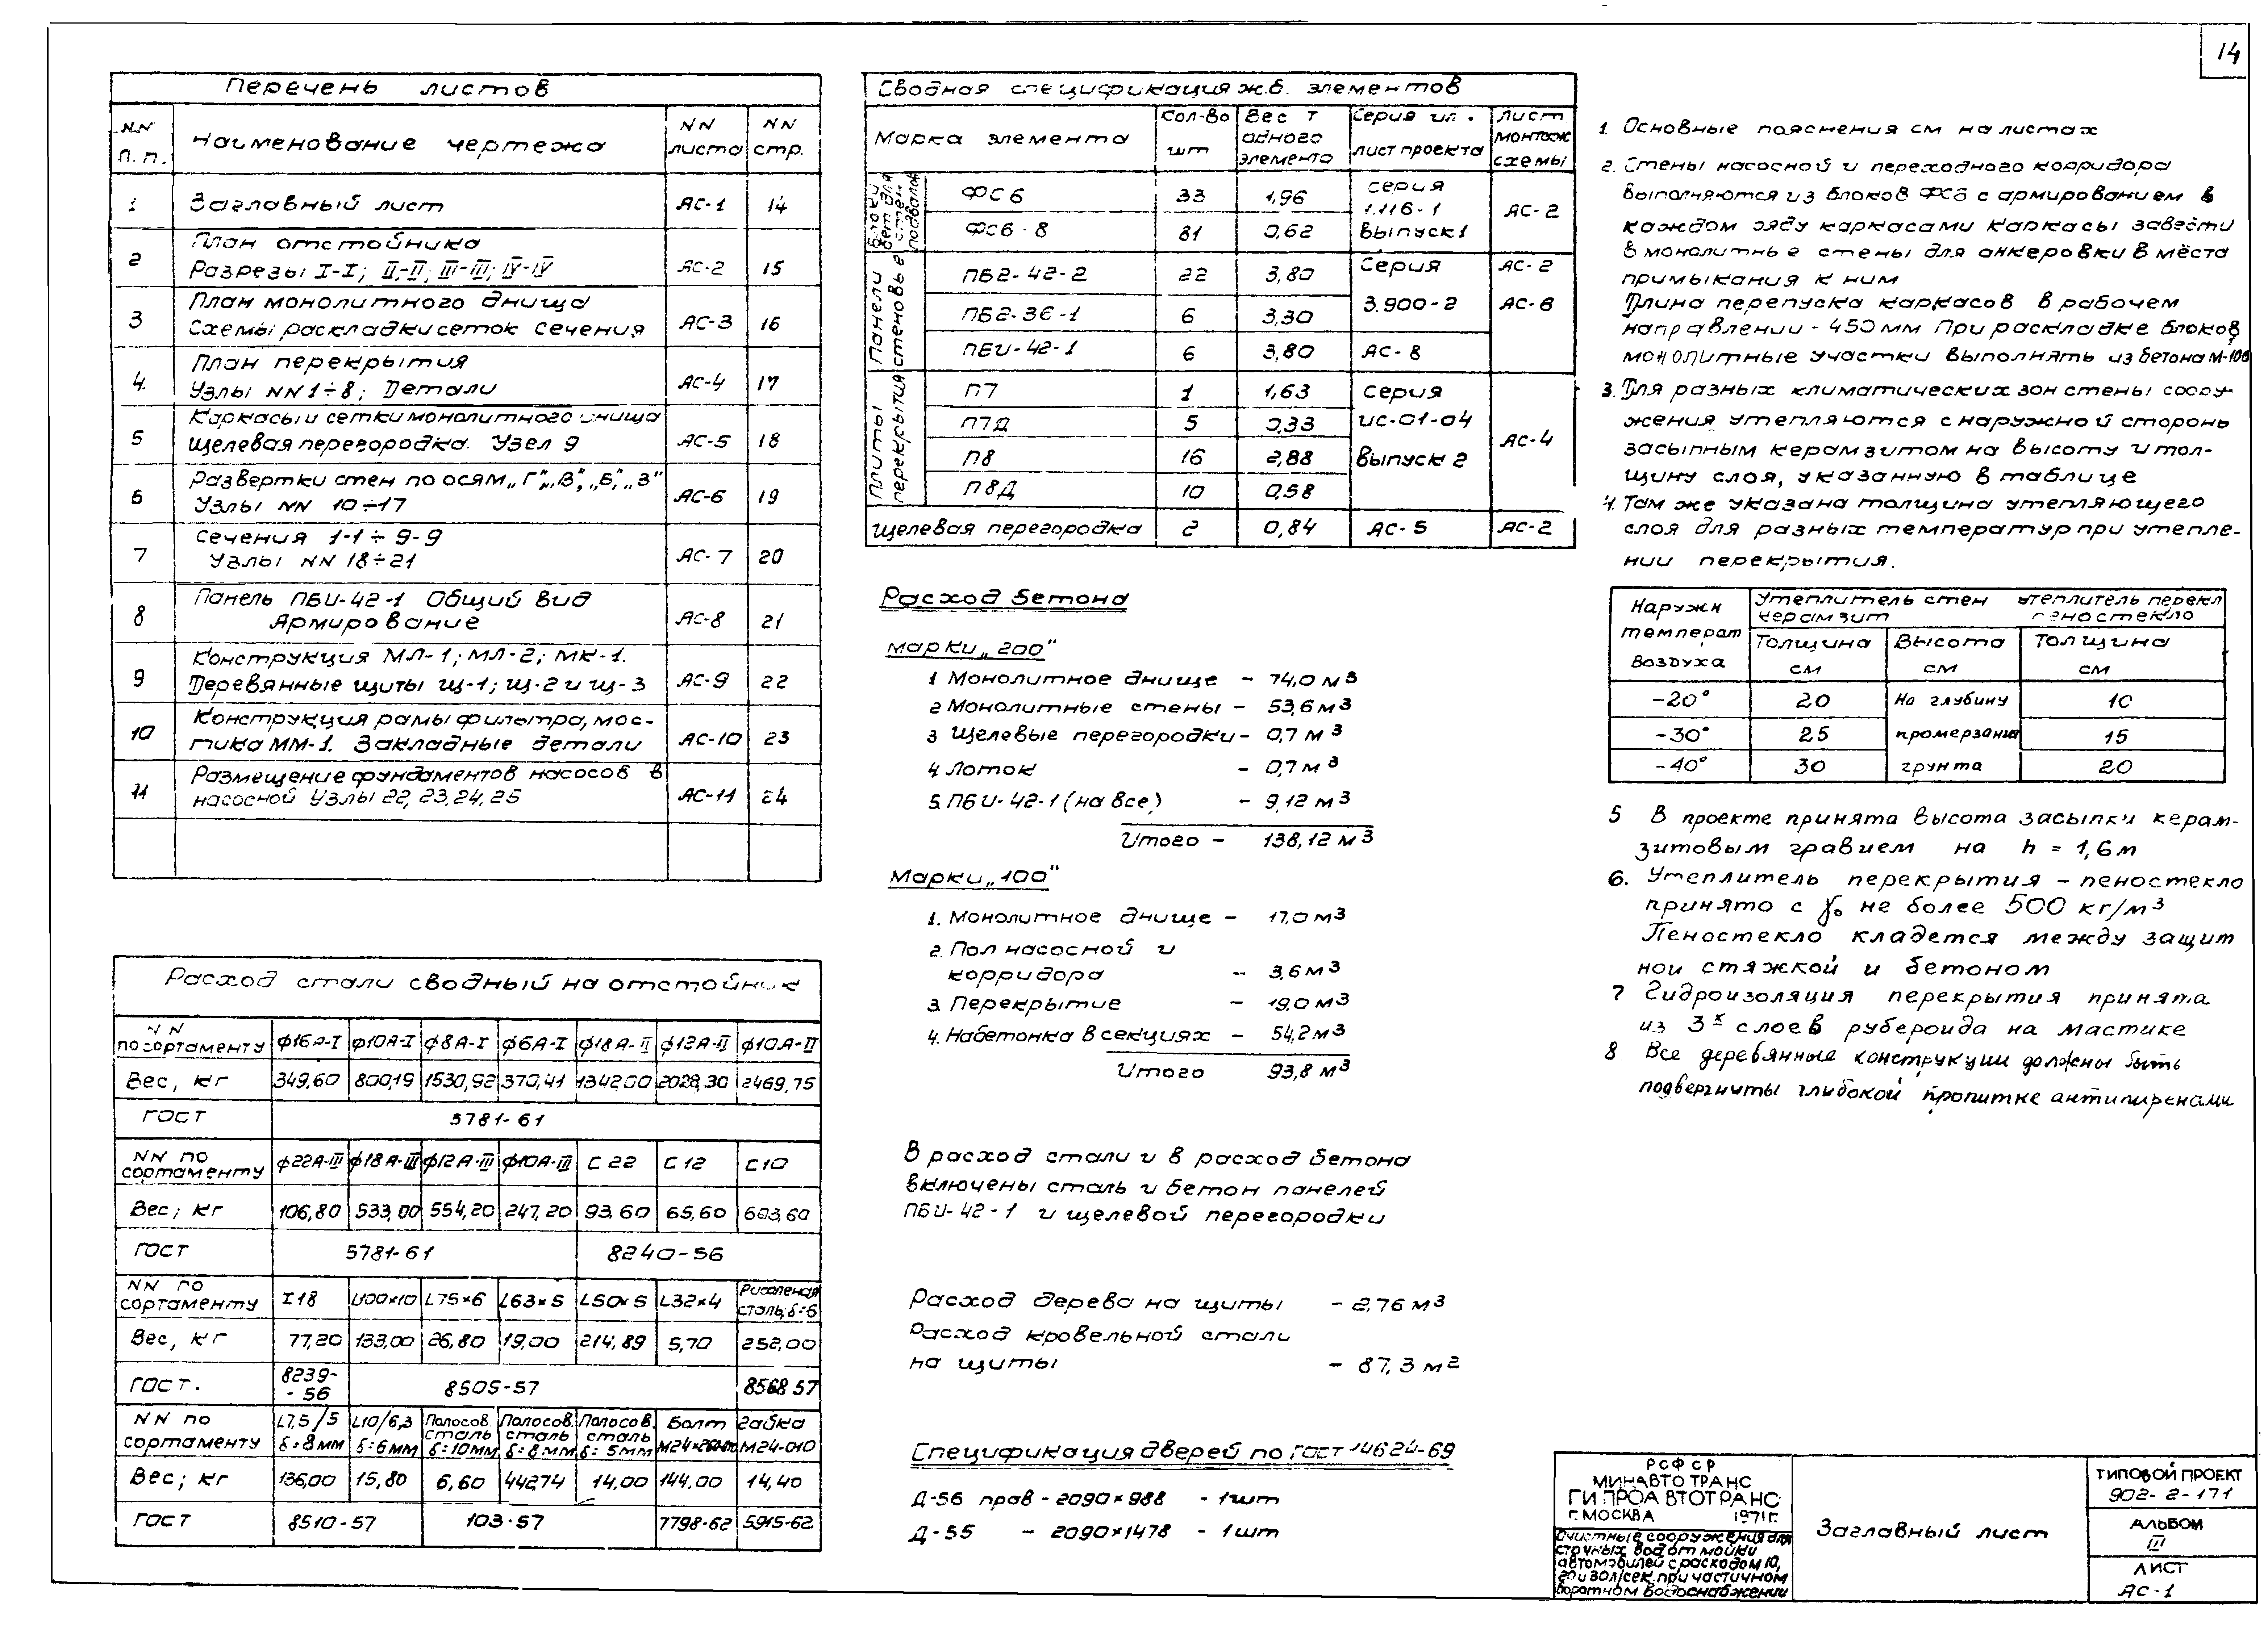 14
Перечень листов
NN п.п. Наименование чертежа NN листа NN стр.
1 Заглавный лист АС-1 14
План отстойника
2 Разрезы I-I; II-II; III-III; IV-IV АС-2 15
План монолитного днища
3 Схемы раскладки сеток Сечения АС-3 16
План перекрытия
4. Узлы NN 1÷8; Детали АС-4 17
Каркасы и сетки монолитного днища
5 Щелевая перегородка. Узел 9 АС-5 18
Развертки стен по осям „Г", „В", „Б", „З"
6 Узлы NN 10÷17 АС-6 19
Сечения 1-1 ÷ 9-9
7 Узлы NN 18÷21 АС-7 20
Панель ПБИ-42-1 Общий вид
8 Армирование АС-8 21
Конструкция МЛ-1; МЛ-2; МК-1.
9 Деревянные щиты Щ-1; Щ-2 и Щ-3 АС-9 22
Конструкция рамы фильтра, мос-
10 тика ММ-1. Закладные детали АС-10 23
Размещение фундаментов насосов в
11 насосной Узлы 22, 23, 24, 25 АС-11 24
Расход стали сводный на отстойник
NN по сортаменту ф16А-I ф10А-I ф8А-I ф6А-I ф18А-II ф12А-II ф10А-II
Вес, кг 349,60 800,19 1530,92 370,41 1342,00 2028,30 2469,75
ГОСТ 5781-61
NN по сортаменту ф22А-III ф18А-III ф12А-III ф10А-III С 22 С 12 С 10
Вес; кг 106,80 533,00 554,20 247,20 93,60 65,60 603,60
ГОСТ 5781-61 8240-56
NN по сортаменту I18 L100×10 L75×6 L63×5 L50×5 L32×4 Рифленая сталь, δ=6
Вес, кг 77,20 133,00 26,80 19,00 214,89 5,70 252,00
ГОСТ. 8239-56 8509-57 8568 57
NN по сортаменту L7,5/5 δ=8мм L10/6,3 δ=6мм Полосов. сталь δ=10мм Полосов. сталь δ=8мм Полосов. сталь δ=5мм Болт Гайка М24-010
Вес; кг 136,00 15,80 6,60 442,74 14,00 144,00 14,40
ГОСТ 8510-57 103-57 7798-62 5915-62
Сводная спецификация ж.б. элементов
Марка элемента Кол-во шт Вес т одного элемента Серия ил. лист проекта Лист монтаж схемы
Блоки бет. для стен подвалов
ФС 6 33 1,96 серия 1.116-1 выпуск 1 АС-2
ФС6-8 81 0,62
Панели стеновые
ПБ2-42-2 22 3,80 Серия 3.900-2 АС-2
ПБ2-36-1 6 3,30 АС-6
ПБИ-42-1 6 3,80 АС-8
Плиты перекрытия
П7 1 1,63 серия ИС-01-04 Выпуск 2 АС-4
П7Д 5 0,33
П8 16 2,88
П8Д 10 0,58
Щелевая перегородка 2 0,84 АС-5 АС-2
Расход бетона
марки „200"
1 Монолитное днище – 74,0 м3
2 Монолитные стены – 53,6 м3
3 Щелевые перегородки – 0,7 м3
4 Лоток – 0,7 м3
5. ПБИ-42-1 (на все) – 9,12 м3
Итого – 138,12 м3
Марки „100"
1. Монолитное днище – 17,0 м3
2. Пол насосной и
корридора – 3,6 м3
3. Перекрытие – 19,0 м3
4. Набетонка в секциях – 54,2 м3
Итого 93,8 м3
В расход стали и в расход бетона
включены сталь и бетон панелей
ПБИ-42-1 и щелевой перегородки
Расход дерева на щиты – 2,76 м3
Расход кровельной стали
на щиты – 87,3 м2
Спецификация дверей по ГОСТ 14624-69
Д-56 прав – 2090×988 – 1шт
Д-55 – 2090×1478 – 1шт
1. Основные пояснения см на листах
2. Стены насосной и переходного корридора
выполняются из блоков ФС6 с армированием в
каждом ряду каркасами Каркасы завести
в монолитные стены для анкеровки в места
примыкания к ним
Длина перепуска каркасов в рабочем
направлении - 450 мм При раскладке блоков
монолитные участки выполнять из бетона М-100
3. Для разных климатических зон стены соору-
жения утепляются с наружной стороны
засыпным керамзитом на высоту и тол-
щину слоя, указанную в таблице
4. Там же указана толщина утепляющего
слоя для разных температур при утепле-
нии перекрытия.
Наружн температ воздуха Утеплитель стен керамзит утеплитель перекл пеностекло
Толщина см Высота см Толщина см
-20° 20 На глубину 10
-30° 25 промерзания 15
-40° 30 грунта 20
5 В проекте принята высота засыпки керам-
зитовым гравием на h = 1,6 м
6. Утеплитель перекрытия – пеностекло
принято с γ₀ не более 500 кг/м3
Пеностекло кладется между защит
ной стяжкой и бетоном
7 Гидроизоляция перекрытия принята
из 3х слоев рубероида на мастике
8. Все деревянные конструкции должны быть
подвергнуты глубокой пропитке антипиренами
РСФСР
МИНАВТОТРАНС
ГИПРОАВТОТРАНС
Г. МОСКВА 1971г.
Очистные сооружения для
сточных вод от мойки
автомобилей с расходом 10,
20 и 30л/сек. при частичном
оборотном водоснабжении
Заглавный лист
ТИПОВОЙ ПРОЕКТ
902-2-171
АЛЬБОМ
III
ЛИСТ
АС-1